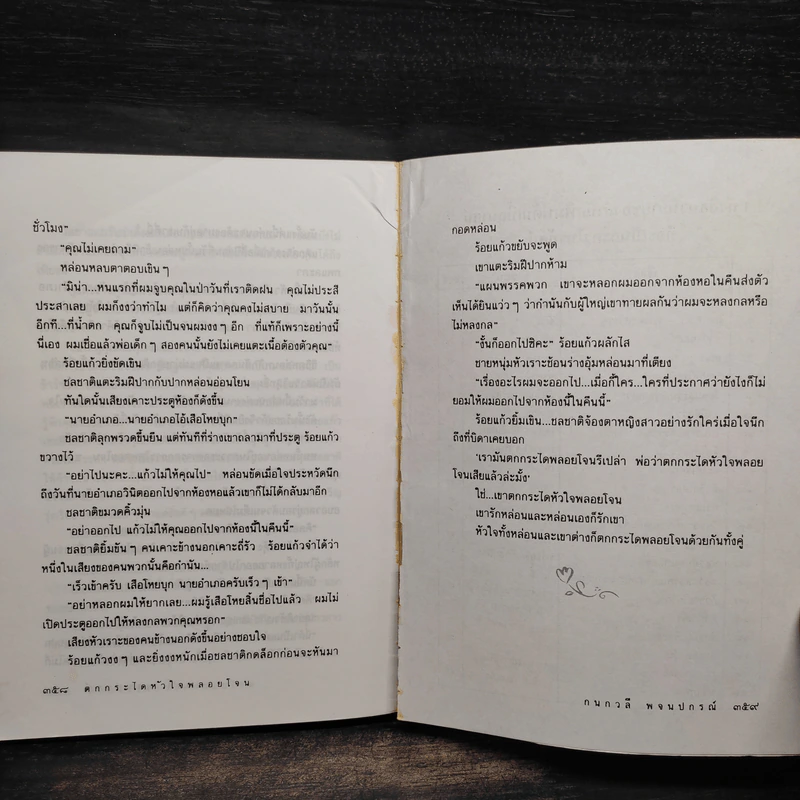 ชั่วโมง"
"คุณไม่เคยถาม"
หล่อนหลบตาตอบเขินๆ
"มิน่า...หนแรกที่ผมจูบคุณในป่าวันที่เราติดฝน คุณไม่ประสี
ประสาเลย ผมก็งงว่าทำไม แต่ก็คิดว่าคุณคงไม่สบาย มาวันนั้น
อีกที...ที่น้ำตก คุณก็จูบไม่เป็นจนผมงงๆ อีก ที่แท้ก็เพราะอย่างนี้
นี่เอง ผมเชื่อแล้วพ่อเด็กๆ สองคนนั้นยังไม่เคยแตะเนื้อต้องตัวคุณ"
ร้อยแก้วยิ่งขัดเขิน
ชลชาติแตะริมฝีปากกับปากหล่อนอ่อนโยน
ทันใดนั้นเสียงเคาะประตูห้องก็ดังขึ้น
"นายอำเภอ...นายอำเภอไอ้เสือโหยบุก"
ชลชาติลุกพรวดขึ้นยืน แต่ทันทีที่ร่างเขาถลามาที่ประตู ร้อยแก้ว
ขวางไว้
"อย่าไปนะคะ...แก้วไม่ให้คุณไป" หล่อนขัดเมื่อใจประหวัดนึก
ถึงวันที่นายอำเภอวินิตออกไปจากห้องหอแล้วเขาก็ไม่ได้กลับมาอีก
ชลชาติขมวดคิ้วมุ่น
"อย่าออกไป แก้วไม่ให้คุณออกไปจากห้องนี้ในคืนนี้"
ชลชาติยิ้มขันๆ คนเคาะข้างนอกเคาะถี่รัว ร้อยแก้วจำได้ว่า
หนึ่งในเสียงของคนพวกนั้นคือกำนัน...
"เร็วเข้าครับ เสือโหยบุก นายอำเภอครับเร็วๆ เข้า"
"อย่าหลอกผมให้ยากเลย...ผมรู้เสือโหยสิ้นชื่อไปแล้ว ผมไม่
เปิดประตูออกไปให้หลงกลพวกคุณหรอก"
เสียงหัวเราะของคนข้างนอกดังขึ้นอย่างชอบใจ
ร้อยแก้วงงๆ และยิ่งงงหนักเมื่อชลชาติกดล็อกก่อนจะหันมา
๓๕๘ ตกกระไดหัวใจพลอยโจน
กอดหล่อน
ร้อยแก้วขยับจะพูด
เขาแตะริมฝีปากห้าม
"แผนพรรคพวก เขาจะหลอกผมออกจากห้องหอในคืนส่งตัว
เห็นได้ยินแว่วๆ ว่ากำนันกับผู้ใหญ่เขาทายผลกันว่าผมจะหลงกลหรือ
ไม่หลงกล"
"งั้นก็ออกไปซิคะ" ร้อยแก้วผลักไส
ชายหนุ่มหัวเราะช้อนร่างอุ้มหล่อนมาที่เตียง
"เรื่องอะไรผมจะออกไป...เมื่อกี้ใคร...ใครที่ประกาศว่ายังไงก็ไม่
ยอมให้ผมออกไปจากห้องนี้ในคืนนี้"
ร้อยแก้วยิ้มเขิน...ชลชาติจ้องตาหญิงสาวอย่างรักใคร่เมื่อใจนึก
ถึงที่บิดาเคยบอก
'เรามันตกกระไดพลอยโจนรึเปล่า พ่อว่าตกกระไดหัวใจพลอย
โจนเสียแล้วล่ะมั้ง'
ใช่...เขาตกกระไดหัวใจพลอยโจน
เขารักหล่อนและหล่อนเองก็รักเขา
หัวใจทั้งหล่อนและเขาต่างก็ตกกระไดพลอยโจนด้วยกันทั้งคู่
กนกวลี พจนปกรณ์ ๓๕๙